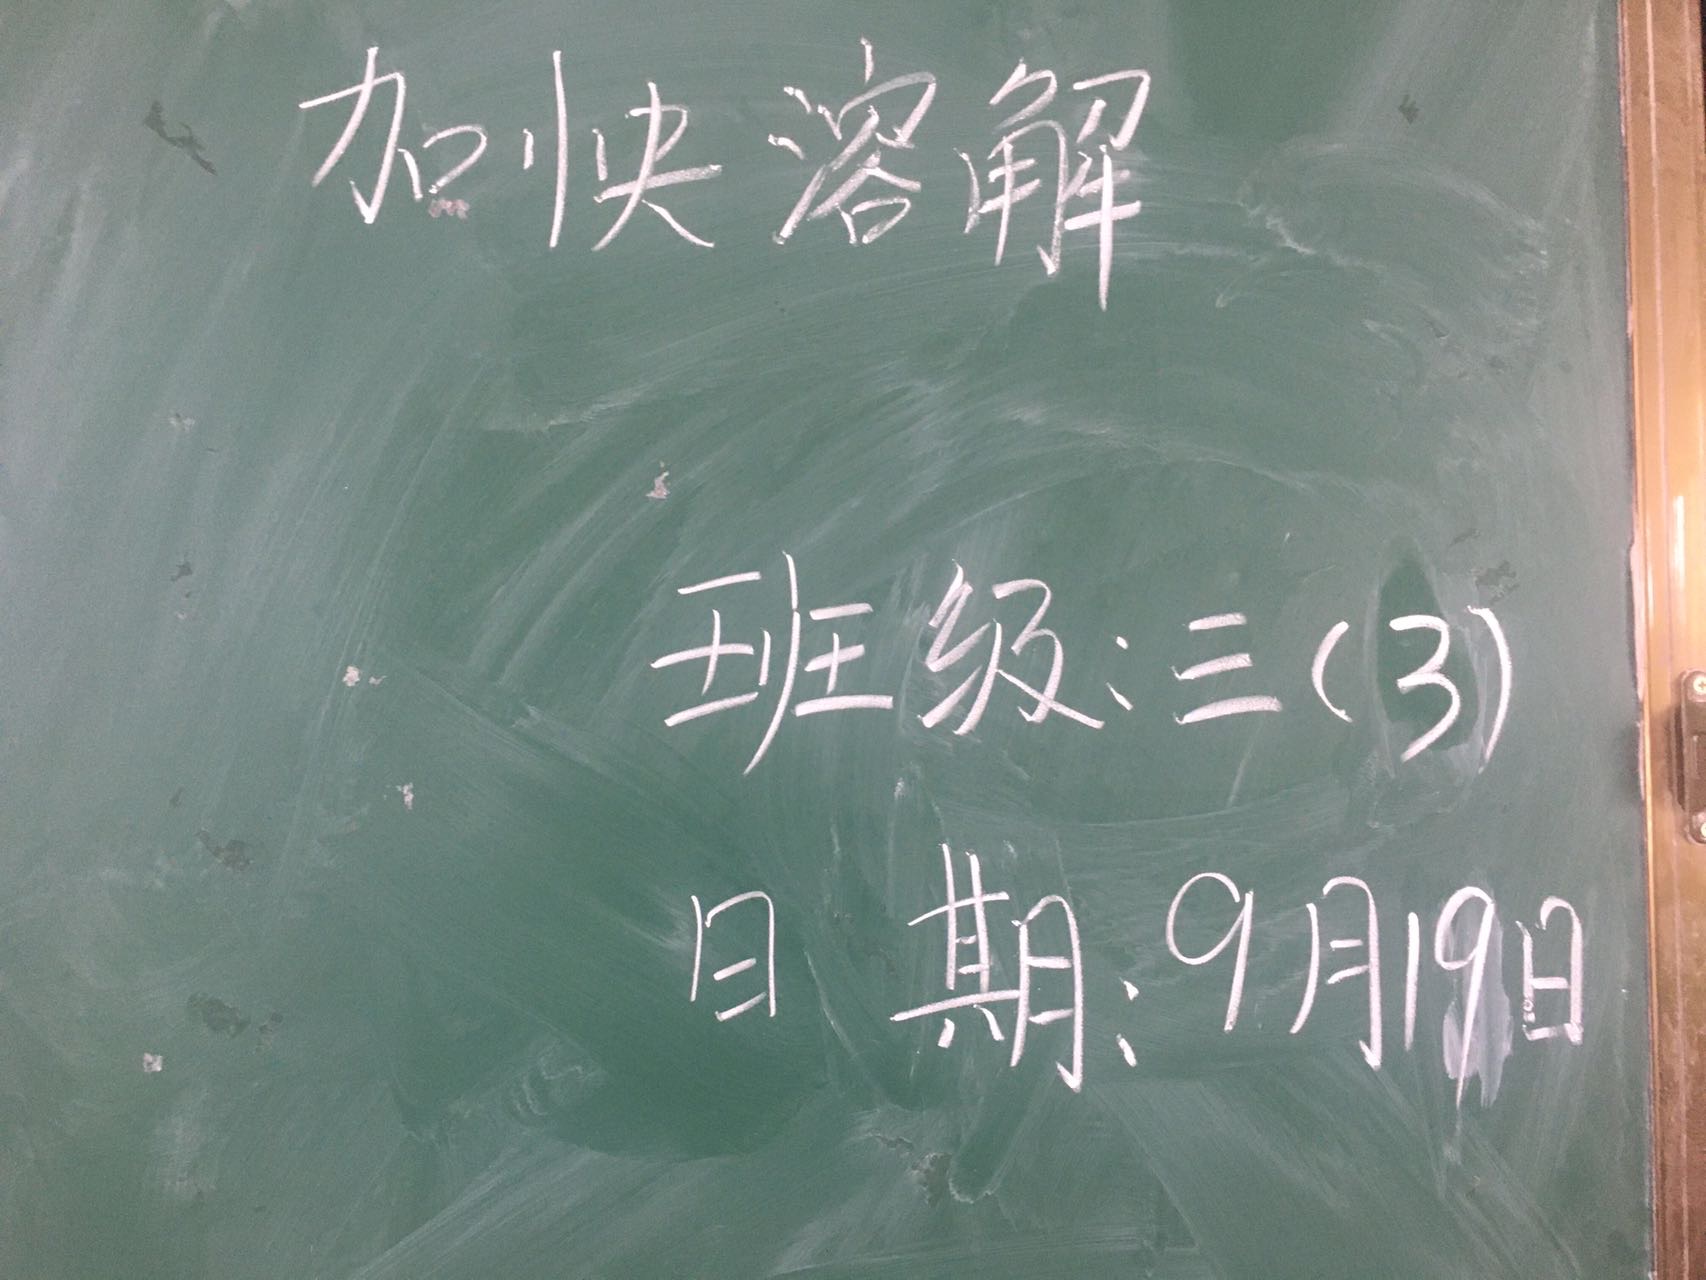 加快溶解
班级:三(3)
日期:9月19日